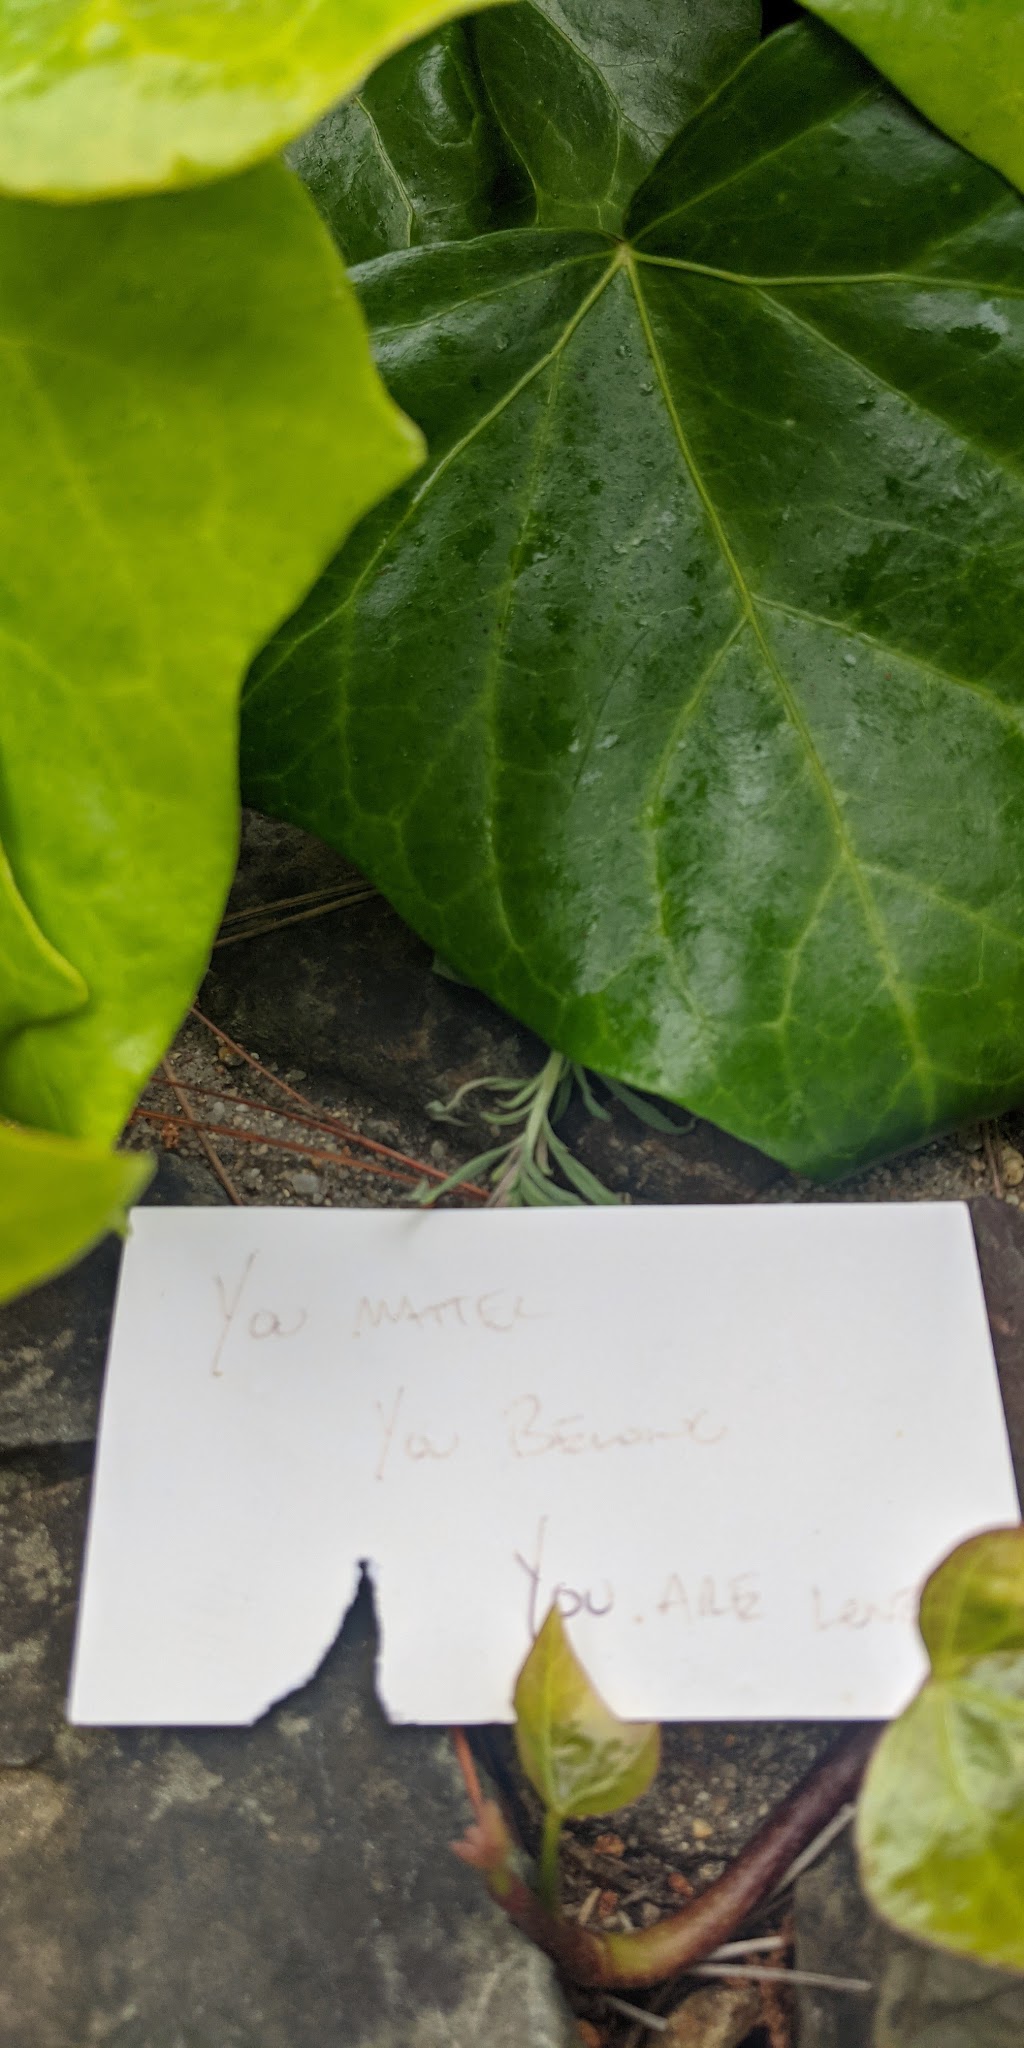 You MATTER
You BELONG
YOU ARE LOVE